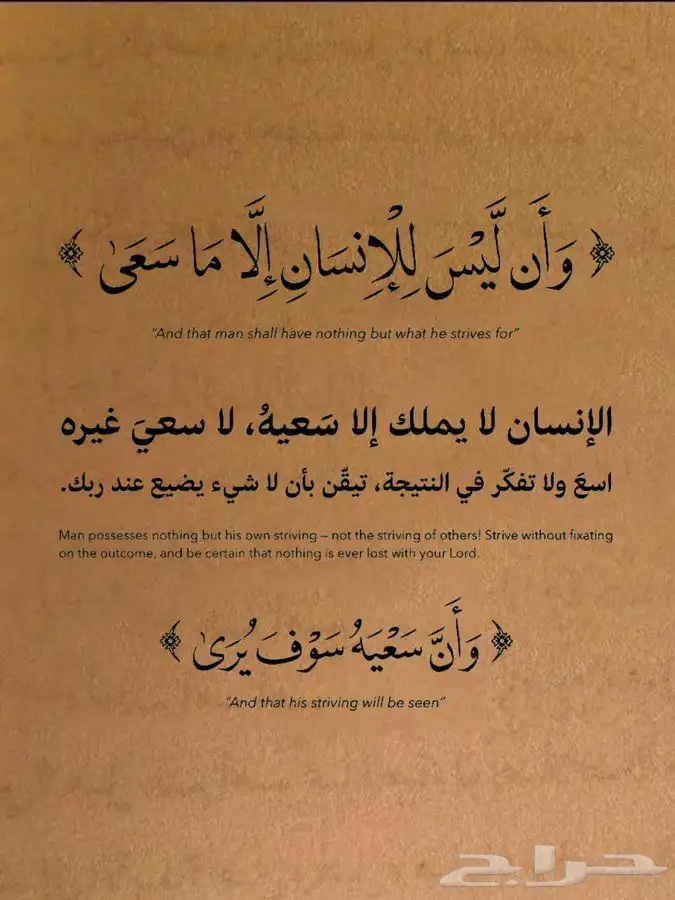 ﴿ وَأَن لَّيْسَ لِلْإِنسَانِ إِلَّا مَا سَعَىٰ ﴾
“And that man shall have nothing but what he strives for”
الإنسان لا يملك إلا سَعيهُ، لا سعيَ غيره
اسعَ ولا تفكّر في النتيجة، تيقّن بأن لا شيء يضيع عند ربك.
Man possesses nothing but his own striving – not the striving of others! Strive without fixating
on the outcome, and be certain that nothing is ever lost with your Lord.
﴿ وَأَنَّ سَعْيَهُ سَوْفَ يُرَىٰ ﴾
“And that his striving will be seen”
حراج